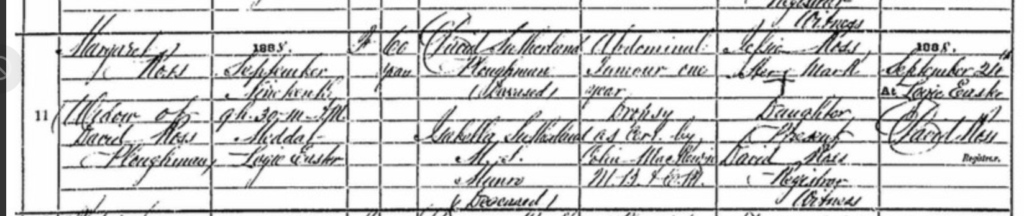 Registrar
Witness
11
Margaret
Ross
Widow of
David Ross
Ploughman
1888.
September
9h. 30m. P.M.
Middal
Logie Easter
F
60
years
David Sutherland
Ploughman
(Deceased)
Isabella Sutherland
M. S.
Munro
(Deceased)
Abdominal
Tumour one
year
Dropsy
as Cert by
M.B. & C.M.
Ross
Her Mark
Daughter
Present
David Ross
Registrar
Witness
1888.
September 24th
At Logie Easter
David Ross
Registrar.